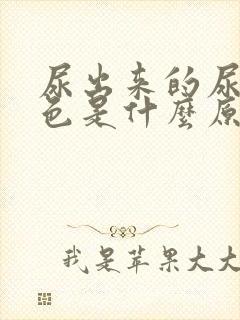 尿出来的尿
色是什麼原
我是苹果大大